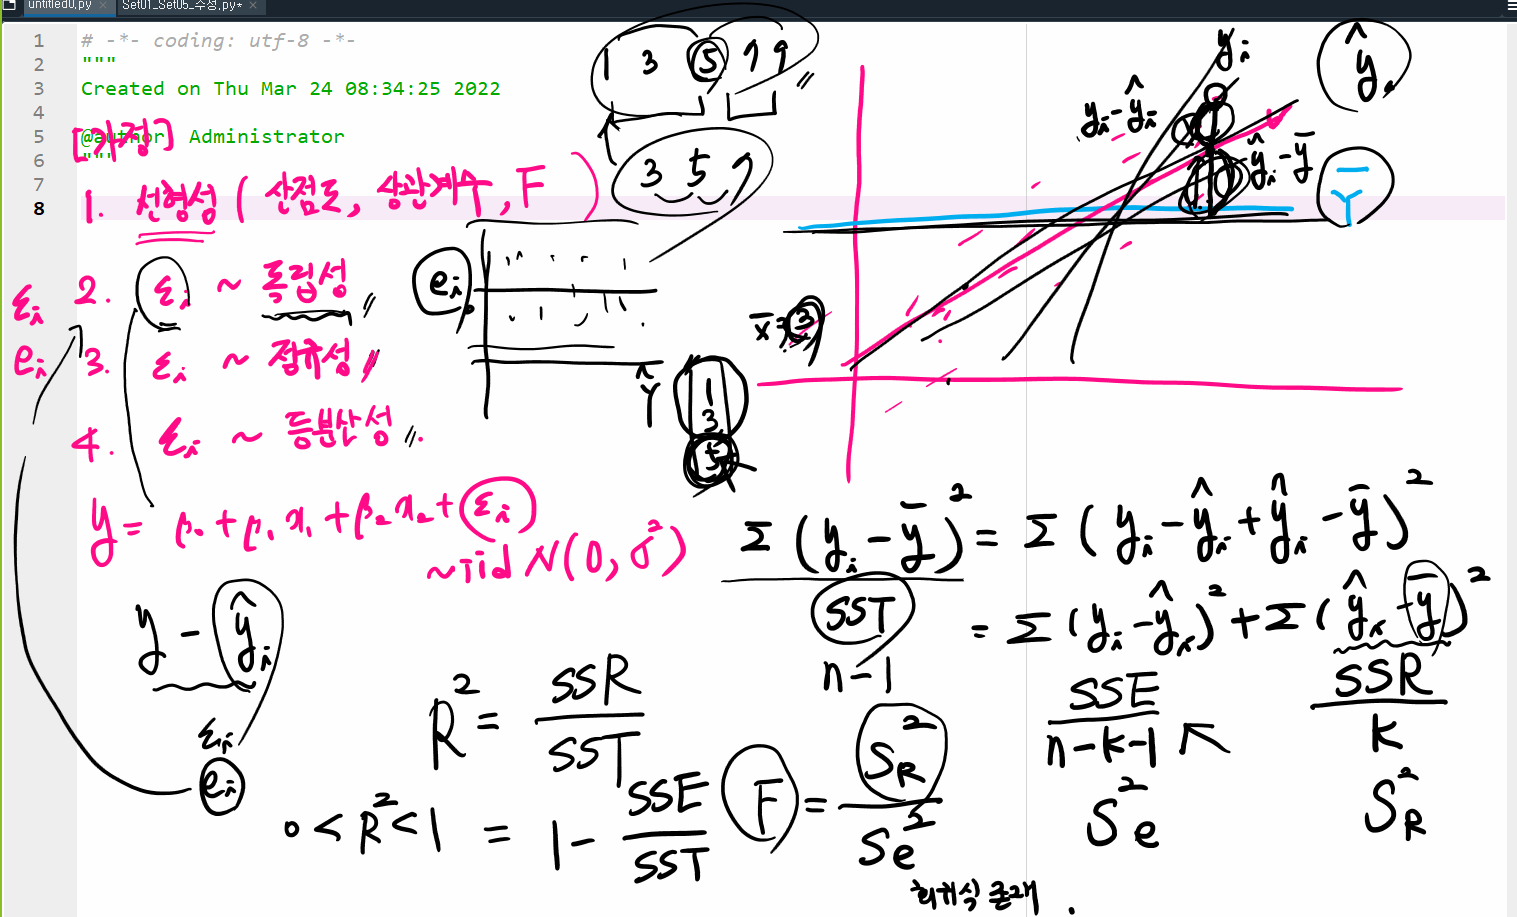 untitled0.py × Set01_Set05_수정.py* ×
1 # -*- coding: utf-8 -*-
2 """
3 Created on Thu Mar 24 08:34:25 2022
4
5 @author: Administrator
6 """
7
8
[가정]
1. 선형성 ( 산점도, 상관계수, F )
2. εi ~ 독립성
3. εi ~ 정규성
4. εi ~ 등분산성
εi
ei
y = β₀ + β₁x₁ + β₂x₂ + εi
~ iid N(0, σ²)
y - ŷi
εi
ei
1 3 5 7 9
3 5 7
ei
Ŷ
1
3
5
x̄ = 3
yi
ŷ
yi - ŷi
ŷi - ȳ
Ȳ
Σ (yi - ȳ)² = Σ (yi - ŷi + ŷi - ȳ)²
= Σ (yi - ŷi)² + Σ (ŷi - ȳ)²
SST
n-1
SSE
n-k-1
Se²
SSR
k
SR²
R² = SSR / SST
0 < R² < 1 = 1 - SSE / SST
F = SR² / Se²
회귀식 존재.